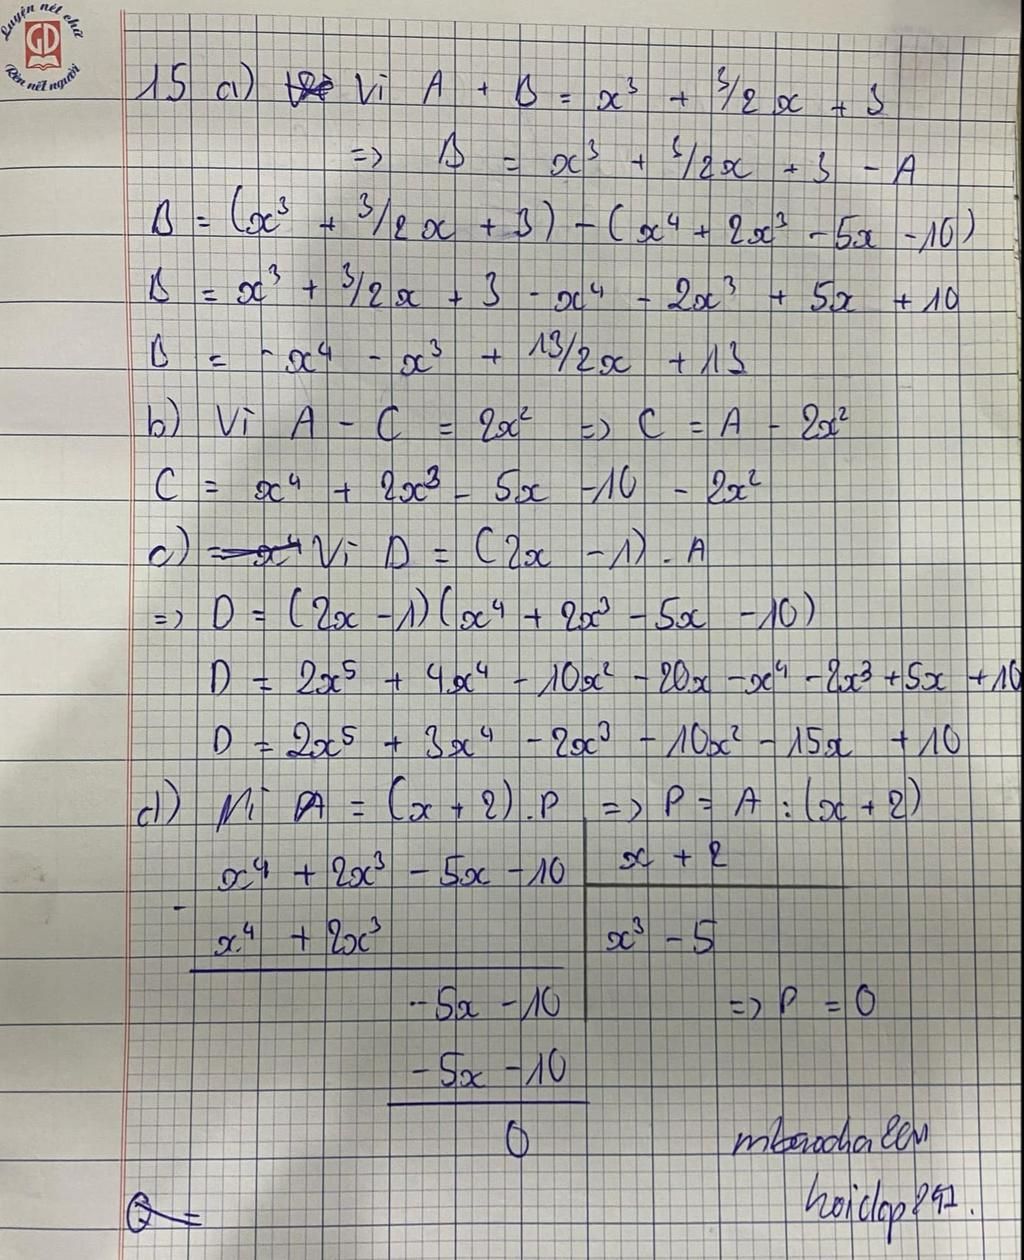 Luyện nét chữ
GD
Rèn nết người
15 a) Vì A + B = x³ + 3/2 x + 3
=> B = x³ + 3/2x + 3 - A
B = (x³ + 3/2 x + 3) - (x⁴ + 2x³ - 5x - 10)
B = x³ + 3/2 x + 3 - x⁴ - 2x³ + 5x + 10
B = - x⁴ - x³ + 13/2x + 13
b) Vì A - C = 2x² => C = A - 2x²
C = x⁴ + 2x³ - 5x - 10 - 2x²
c) Vì D = (2x - 1) . A
=> D = (2x - 1)(x⁴ + 2x³ - 5x - 10)
D = 2x⁵ + 4x⁴ - 10x² - 20x - x⁴ - 2x³ + 5x + 10
D = 2x⁵ + 3x⁴ - 2x³ - 10x² - 15x + 10
d) Vì A = (x + 2) . P => P = A : (x + 2)
x⁴ + 2x³ - 5x - 10 x + 2
-
x⁴ + 2x³ x³ - 5
- 5x - 10 => P = 0
- 5x - 10
0